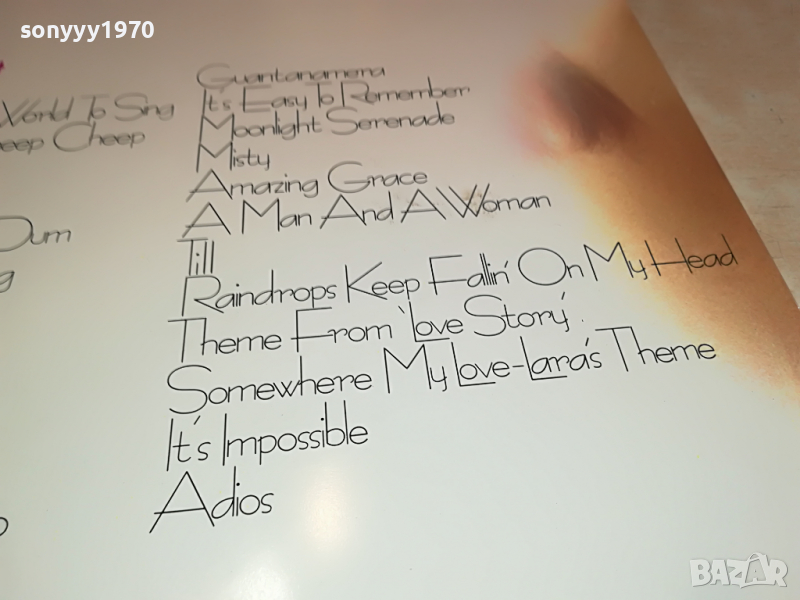 sonyyy1970
World To Sing
Cheep
Dum
Guantanamera
It's Easy To Remember
Moonlight Serenade
Misty
Amazing Grace
A Man And A Woman
Till
Raindrops Keep Fallin' On My Head
Theme From 'Love Story'
Somewhere My Love-Lara's Theme
It's Impossible
Adios
BAZAR